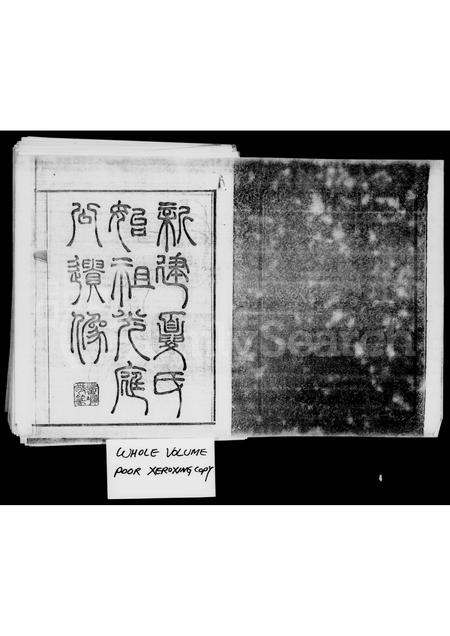 新建夏氏
始祖光庭
公遺像
WHOLE VOLUME
POOR XEROXING COPY
FamilySearch